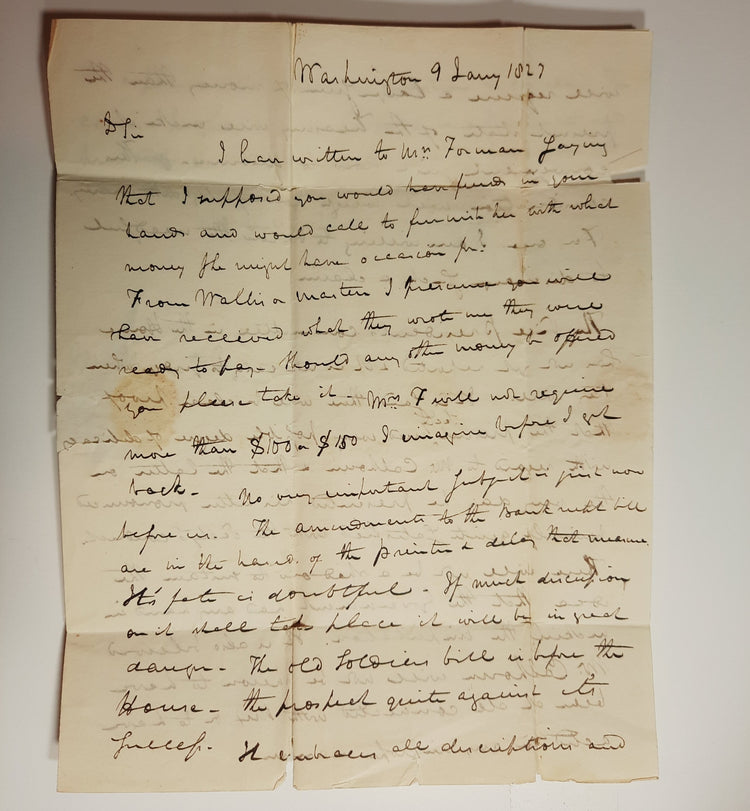 Washington 9 Jany 1827
DSir
I have written to Mrs Forman saying
that I supposed you would have funds in your
hands and would call to furnish her with what
money she might have occasion for.
From Wallis or Masten I presume you will
have received what they wrote me they were
ready to pay. Should any other money be offered
you please take it - Mrs F will not require
more than $100 or $150 I imagine before I get
back - No very important subject is just now
before us. The amendments to the Bankrupt bill
are in the hands of the printer & delay that measure.
It's fate is doubtful - If much discussion
on it shall take place it will be in great
danger - The old Soldiers bill is before the
House - the prospect quite against it's
success. It embraces all descriptions and